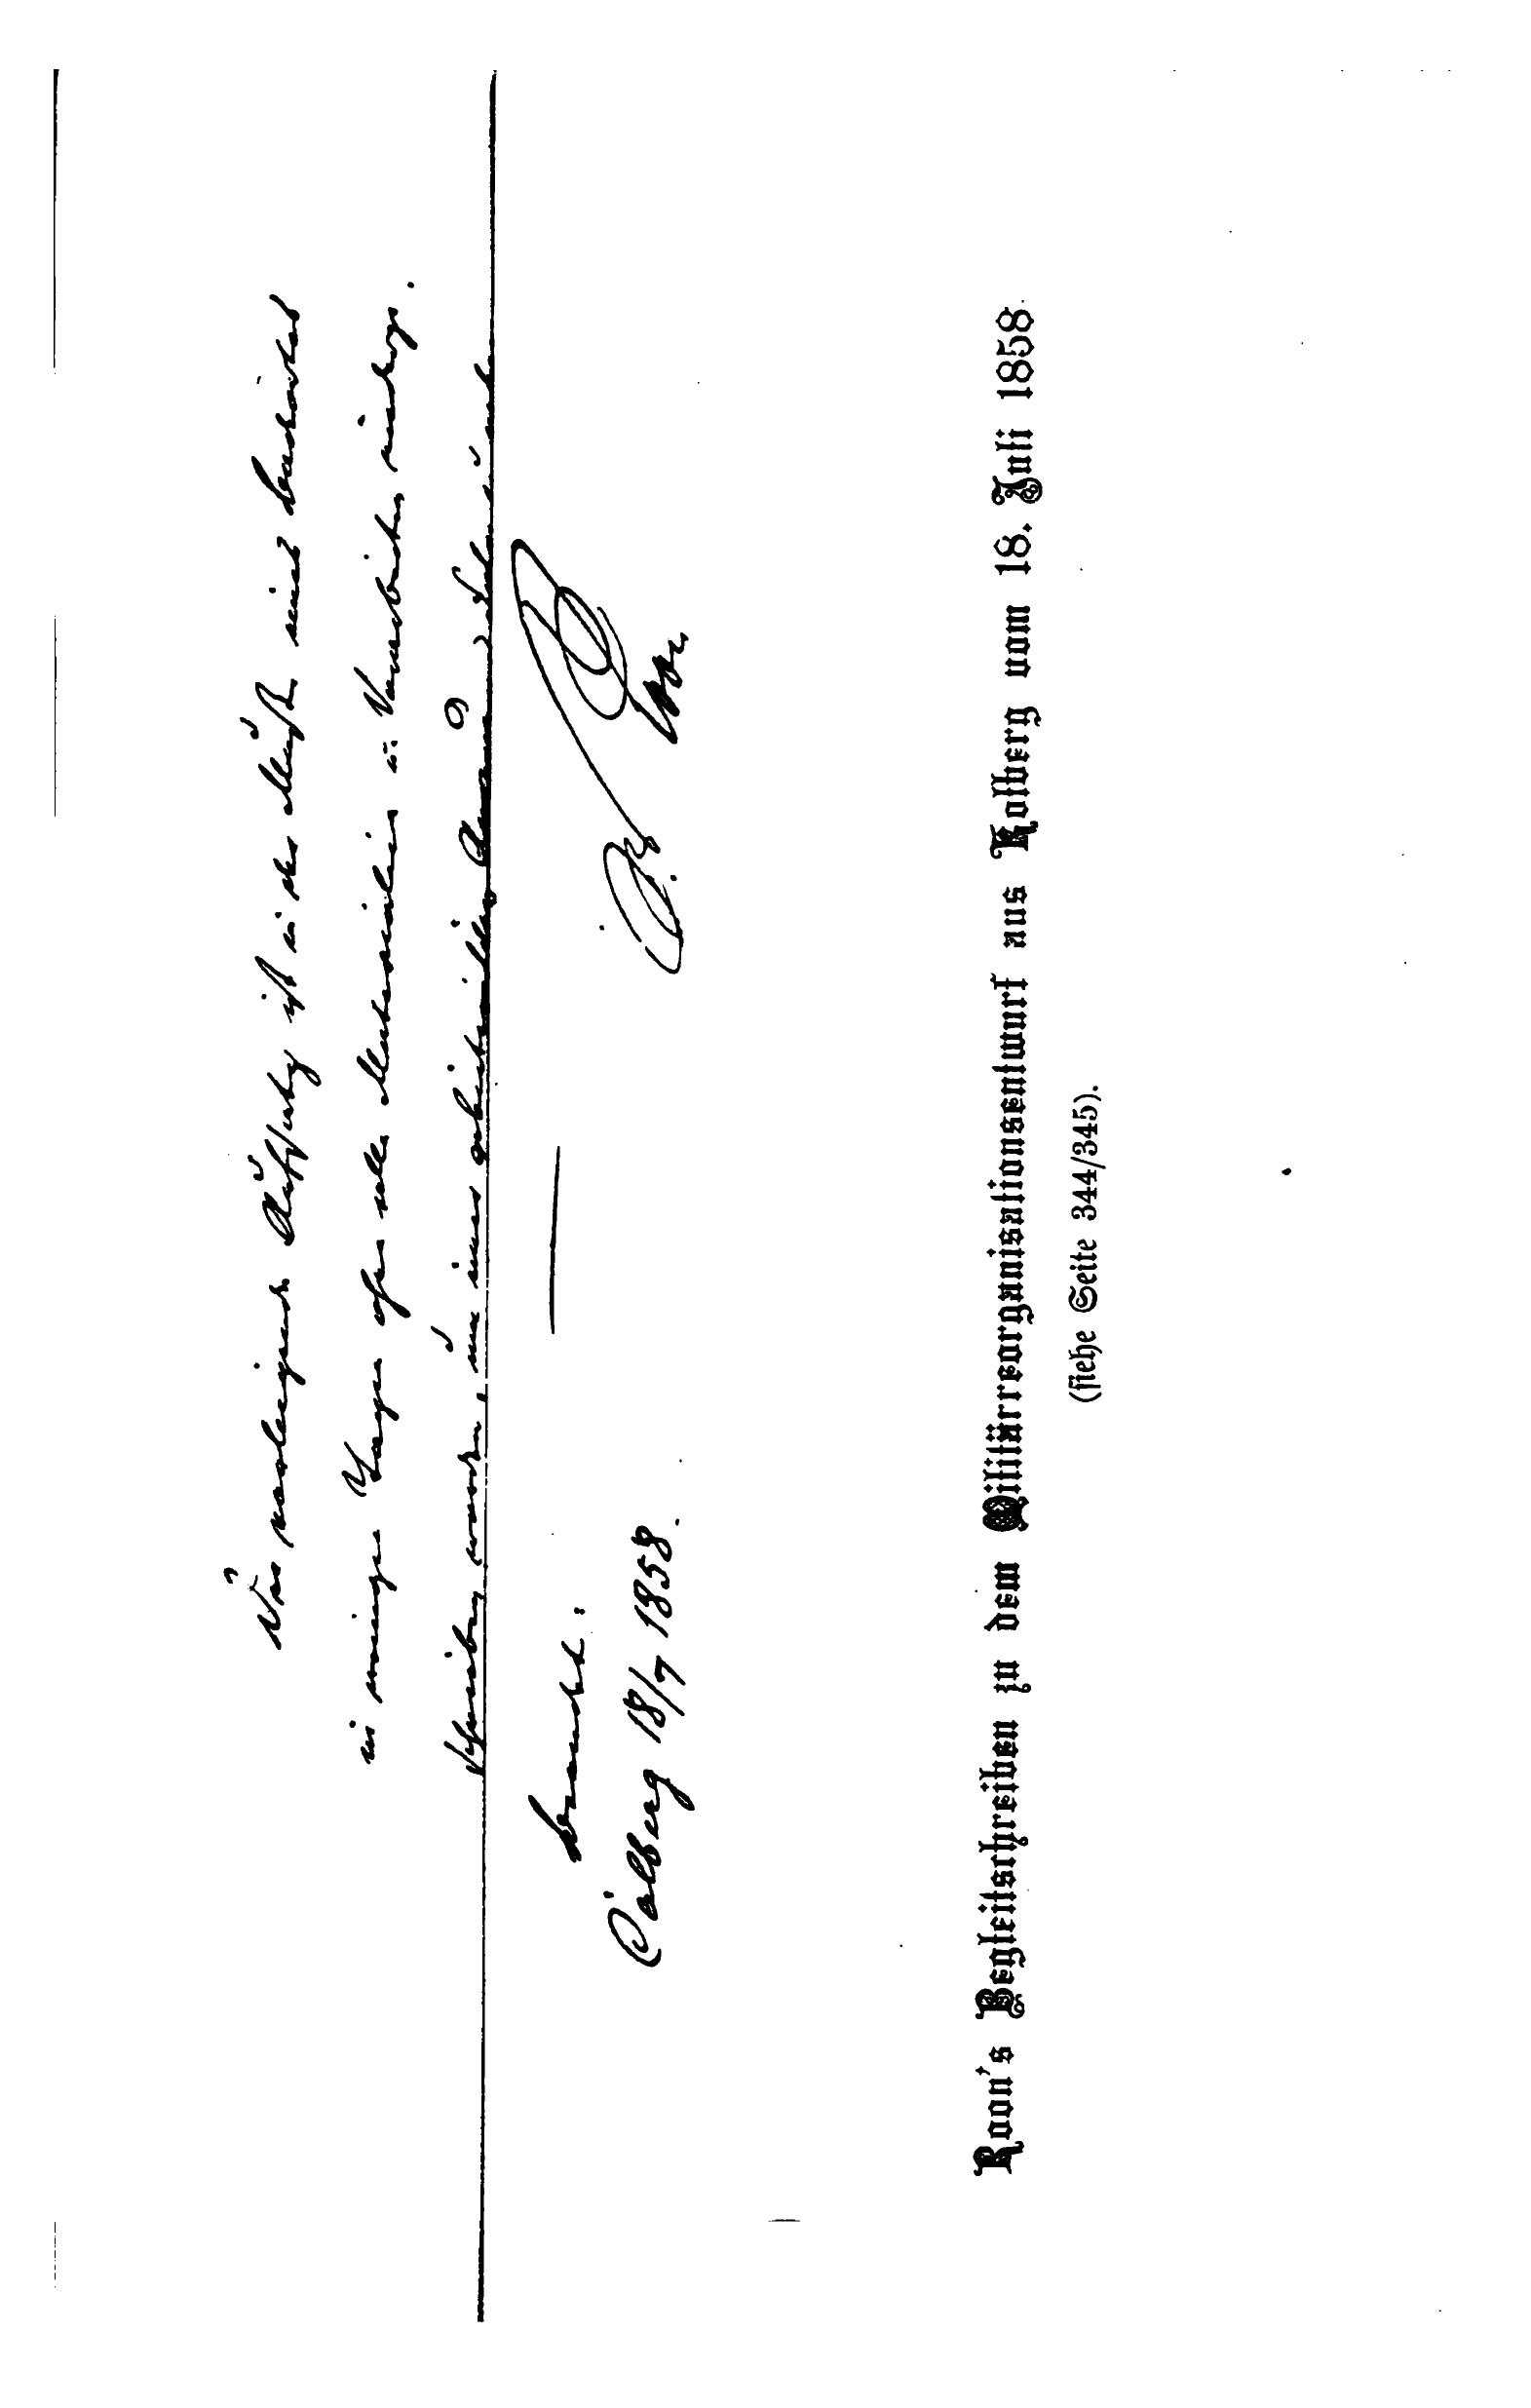 Der vorliegende Aufsatz ist in der Muße einer Badereise
in wenigen Tagen ohne alle Materialien u. Vorarbeiten niederge-
schrieben worden, um einer gebietenden
Veracht:
Colberg 18/7 1858.
Roon's Begleitschreiben zu dem Militärreorganisationsentwurf aus Kolberg vom 18. Juli 1858
(siehe Seite 344/345).